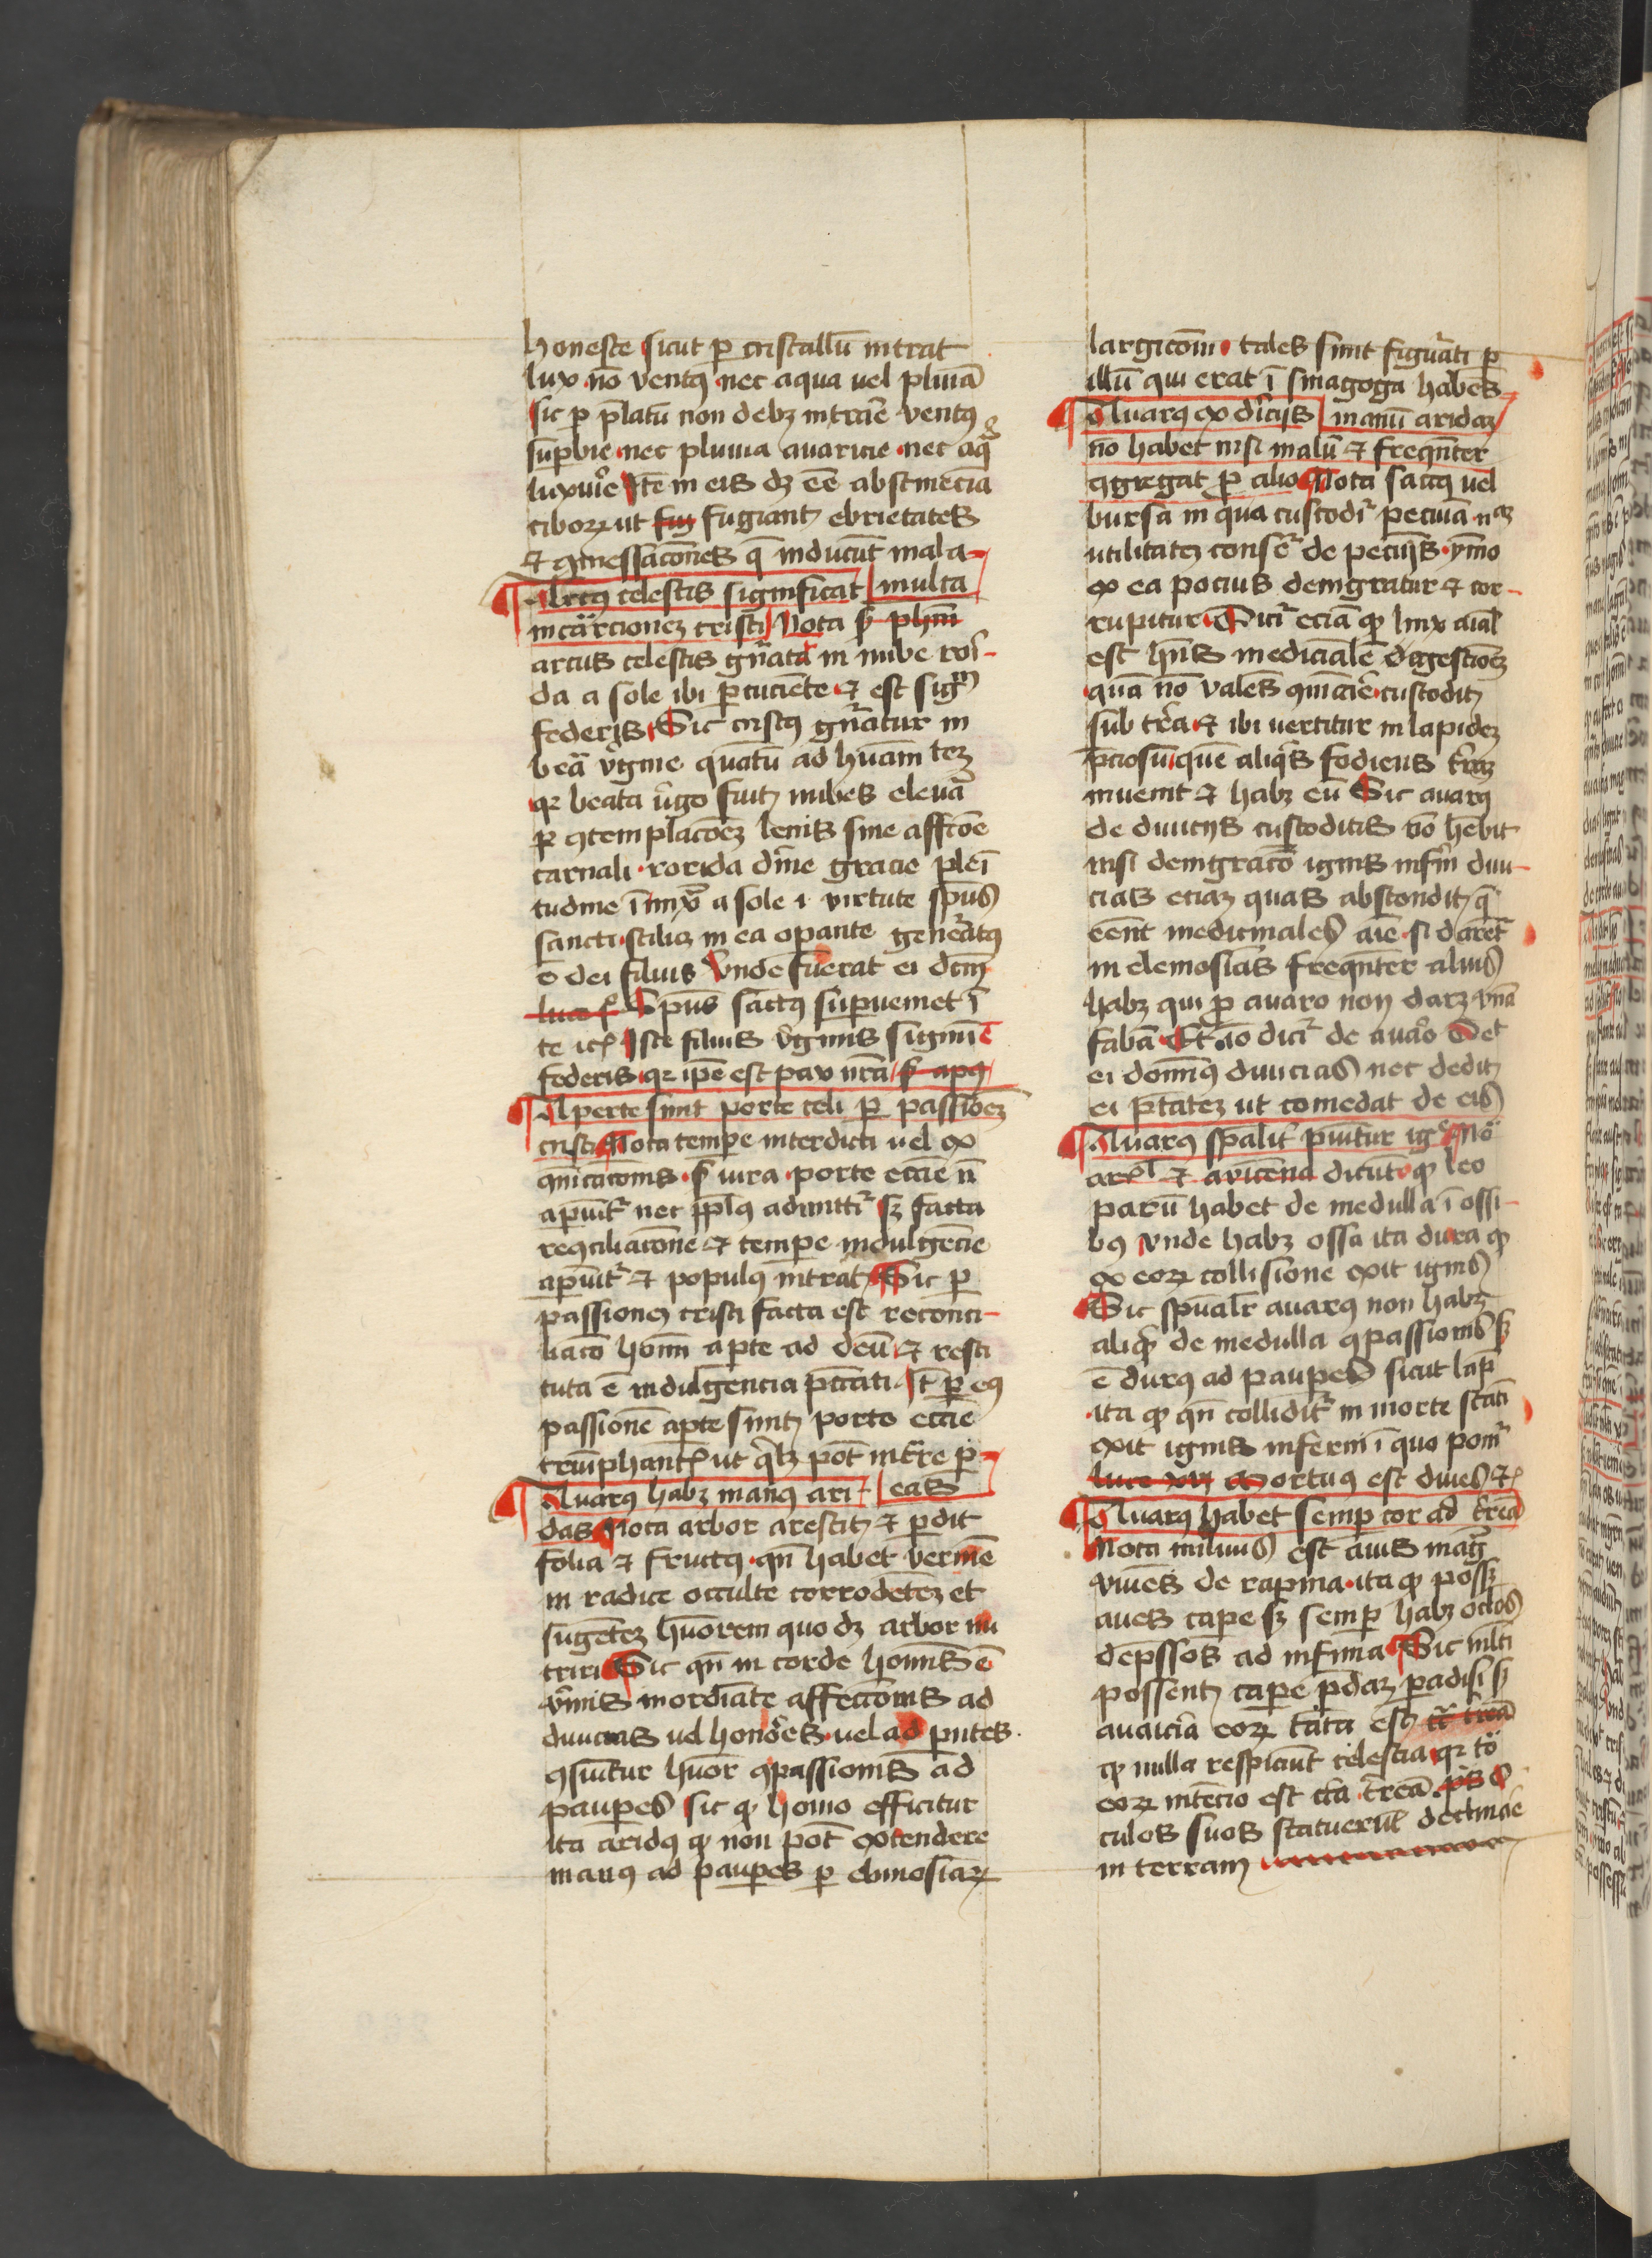 honeste sicut p cristallū intrat
lux nō ventꝰ nec aqua uel pluuia
sic p p̄latū non debꝫ intrare ventꝰ
suꝑbie nec pluuia auaricie nec aqua
luxurie Itē in eis dꝫ eē abstinēcia
ciboꝝ ut fugiant ebrietates
et ꝯmessacōnes q̄ inducūt mala
Arcus celestis significat multa
incarcionem cristi Nota ẜ phm̄
arcus celestis gn̄atꝰ in nube rori-
da a sole ibi ꝑcuciente et est signū
federis Sic cristꝰ gn̄atur in
beā v̓gine quātū ad hūanitatem
qꝛ beata v̓go fuit nubes eleuata
ꝑ ꝯtemplacōeꝫ lenis sine affcōe
carnali rorida diuine gracie pleni
tudine a sole i virtute spūs
sancti scilicet in ea opante generatꝰ
ē dei filius Vnde fuerat ei dcm̄
Spūs sanctꝰ supueniet ī
te etc Iste filius v̓ginis signū ē
federis qꝛ ipē est pax nrā ẜ apꝰ
Aperte sunt porte celi ꝑ passionem
cristi Nota tempe interdicti uel ex
ꝯmunicacionis ẜ iura porte eccīe nō
apiūtur nec pplꝰ admittitur sꝫ facta
recōciliacione et tempe indulgēcie
apiūtur et populꝰ intrat Sic ꝑ
passionem cristi facta est reconci-
liaco homī aperte ad deū et resti
tuta ē indulgencia pccati Itē ꝑ eiꝰ
passionē apte sunt porte eccīe
triūphantꝭ ut qꝫ pōt intrare p
Auarꝰ habꝫ manꝰ ari- eas
das Nota arbor arescit et pdit
folia et fructꝰ qn̄ habet vermē
in radice occulte corrodētem et
sugētem hūorem quo dꝫ arbor nu
triri Sic qn̄ in corde hominis ē
v̓mis inordinate affectionis ad
diuicias uel honores uel ad pntes
ꝯsūitur hūor ꝯpassionis ad
paupes sic qꝫ homo efficitur
ita aridꝰ qꝫ non pōt extendere
manꝰ ad paupes ꝑ elimosinaꝝ
largicōm tales sunt figurati ꝑ
illū qui erat ī sinagoga habēs
Auarꝰ ex diuicijs manū aridam
nō habet nisi malū et freqn̄ter
ꝯgregat pro alio Nota saccꝰ uel
bursa in qua custoditur pecuīa nō
utilitatem consequitur de pecūijs ymo
ex ea pocius denigratur et cor-
rūpitur Dicitur eciā qꝫ linx aīal
est hn̄s medicinalē digestionem
quā nō valens custodit
sub tr̄a et ibi vertitur in lapidem
p̄ciosū quē aliquis fodiens terram
inuenit et habꝫ eū Sic auarꝰ
de diuicijs custoditis nō hēbit
nisi denigraciō ignis inferni diui-
cias eciam quas abscondit q̄
eēnt medicinales aīe si daret
in elemosinas freqn̄ter alius
habꝫ qui p auaro non daret vnā
fabā Et iō dicitur de auaro Det
ei dominꝰ diuicias nec dedit
ei ptātem ut comedat de eis
Auarꝰ spālit punitur igne Nō
arēs et auicēna dicūt qꝫ leo
parū habet de medulla ī ossi-
bꝰ vnde habꝫ ossa ita dura qꝫ
ex eoꝝ collisione exit ignis
Sic spūalr auarꝰ non habꝫ
aliquid de medulla ꝯpassionis sꝫ
ē durꝰ ad paupes sicut lapis
ita qꝫ qn̄ colliditur in morte stati
exit ignis inferni ī quo ponitur
Mortuus est diues etc
Auarꝰ habet semp cor ad terrā
Nota miluus est auis magna
viuēs de rapina ita qꝫ posset
aues cape sꝫ semp habꝫ oclos
depssos ad infima Sic multi
possent cape predam paradisi sꝫ
auaricia eoꝝ tāta est
qꝫ nulla respiciūt celestia qꝛ tō
eoꝝ intēcio est terrena o
culos suos statuerūt declinare
in terram